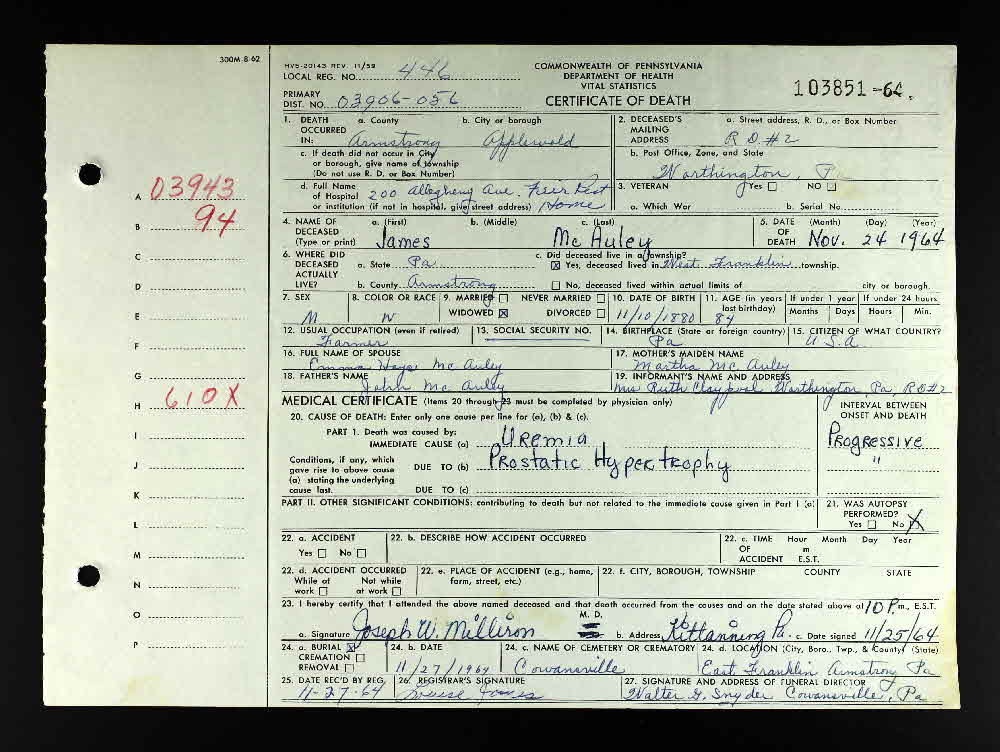 300M-8-62
HVS-20143 REV. 11/59
LOCAL REG. NO. 446
COMMONWEALTH OF PENNSYLVANIA
DEPARTMENT OF HEALTH
VITAL STATISTICS
CERTIFICATE OF DEATH
103851-64.
PRIMARY
DIST. NO. 03906-056
1. DEATH OCCURRED IN: a. County b. City or borough
Armstrong Applewold
c. If death did not occur in City or borough, give name of township
(Do not use R. D. or Box Number)
d. Full Name of Hospital or institution (if not in hospital, give street address)
200 Allegheny Ave. Rest Home
2. DECEASED'S MAILING ADDRESS a. Street address, R. D., or Box Number
R D #2
b. Post Office, Zone, and State
Worthington, Pa
3. VETERAN Yes NO
a. Which War b. Serial No.
4. NAME OF DECEASED (Type or print) a. (First) b. (Middle) c. (Last)
James McAuley
5. DATE OF DEATH (Month) (Day) (Year)
Nov. 24 1964
6. WHERE DID DECEASED ACTUALLY LIVE? a. State Pa
b. County Armstrong
c. Did deceased live in a township?
Yes, deceased lived in West Franklin township.
No, deceased lived within actual limits of city or borough.
7. SEX M
8. COLOR OR RACE W
9. MARRIED NEVER MARRIED
WIDOWED DIVORCED
10. DATE OF BIRTH 11/10/1880
11. AGE (in years last birthday) 84
If under 1 year Months Days
If under 24 hours Hours Min.
12. USUAL OCCUPATION (even if retired) Farmer
13. SOCIAL SECURITY NO.
14. BIRTHPLACE (State or foreign country) Pa
15. CITIZEN OF WHAT COUNTRY? U.S.A
16. FULL NAME OF SPOUSE
Emma Hays Mc Auley
17. MOTHER'S MAIDEN NAME
Martha Mc. Auley
18. FATHER'S NAME
John Mc Auley
19. INFORMANT'S NAME AND ADDRESS
Mrs Ruth Claypool Worthington, Pa, RD#2
MEDICAL CERTIFICATE (Items 20 through 23 must be completed by physician only)
INTERVAL BETWEEN ONSET AND DEATH
20. CAUSE OF DEATH: Enter only one cause per line for (a), (b) & (c).
PART 1. Death was caused by:
IMMEDIATE CAUSE (a) Uremia Progressive
Conditions, if any, which gave rise to above cause (a) stating the underlying cause last.
DUE TO (b) Prostatic Hypertrophy "
DUE TO (c)
PART II. OTHER SIGNIFICANT CONDITIONS: contributing to death but not related to the immediate cause given in Part I (a)
21. WAS AUTOPSY PERFORMED?
Yes No X
22. a. ACCIDENT
Yes No
22. b. DESCRIBE HOW ACCIDENT OCCURRED
22. c. TIME OF ACCIDENT Hour Month Day Year
m E.S.T.
22. d. ACCIDENT OCCURRED
While at work Not while at work
22. e. PLACE OF ACCIDENT (e.g., home, farm, street, etc.)
22. f. CITY, BOROUGH, TOWNSHIP COUNTY STATE
23. I hereby certify that I attended the above named deceased and that death occurred from the causes and on the date stated above at 10 P.m., E.S.T.
a. Signature Joseph W. Milliron M. D.
b. Address Kittanning Pa. c. Date signed 11/25/64
24. a. BURIAL
CREMATION
REMOVAL
24. b. DATE
11/27/1964
24. c. NAME OF CEMETERY OR CREMATORY
Cowansville
24. d. LOCATION (City, Boro., Twp., & County) (State)
East Franklin Armstrong Pa
25. DATE REC'D BY REG.
11-27-64
26. REGISTRAR'S SIGNATURE
27. SIGNATURE AND ADDRESS OF FUNERAL DIRECTOR
Walter G. Snyder Cowansville, Pa
A 03943
B 94
C
D
E
F
G
H 610X
I
J
K
L
M
N
O
P